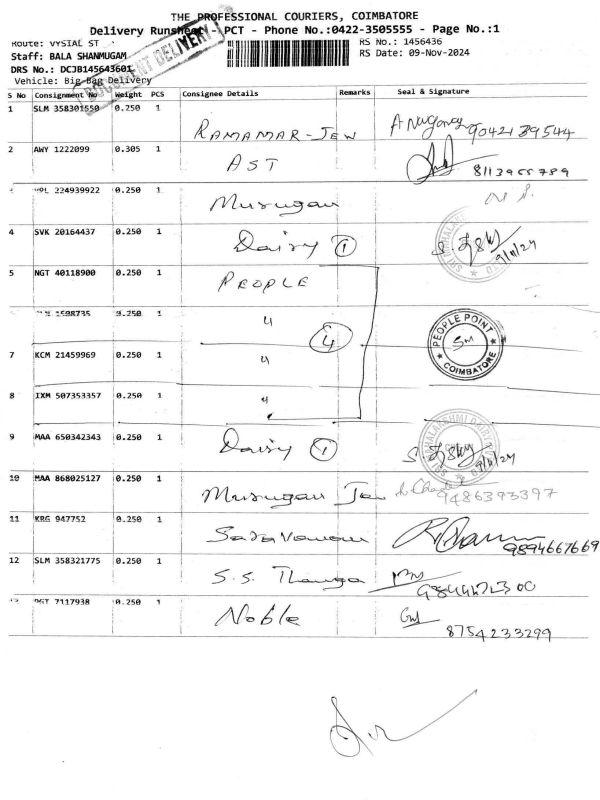 THE PROFESSIONAL COURIERS, COIMBATORE
Delivery Runsheet - PCT - Phone No.:0422-3505555 - Page No.:1
Route: VYSIAL ST
RS No.: 1456436
Staff: BALA SHANMUGAM
RS Date: 09-Nov-2024
DRS No.: DCJB145643601
DOCUMENT DELIVERY
Vehicle: Big Bag Delivery
S No Consignment No Weight PCS Consignee Details Remarks Seal & Signature
1 SLM 358301550 0.250 1 RAMAMAR-JEW 9042139544
2 AWY 1222099 0.305 1 AST 8113955789
224939922 0.250 1 Murugan
4 SVK 20164437 0.250 1 Dairy 1 9/11/24
5 NGT 40118900 0.250 1 PEOPLE
1598735 0.250 1 "
4
PEOPLE POINT COIMBATORE
7 KCM 21459969 0.250 1 "
8 IXM 507353357 0.250 1 "
9 MAA 650342343 0.250 1 Dairy 1 9/11/24
10 MAA 868025127 0.250 1 Murugan Jew 9486393397
11 KRG 947752 0.250 1 Saravanan 9894667669
12 SLM 358321775 0.250 1 S.S. Thanga
7117938 0.250 1 Noble 8754233299